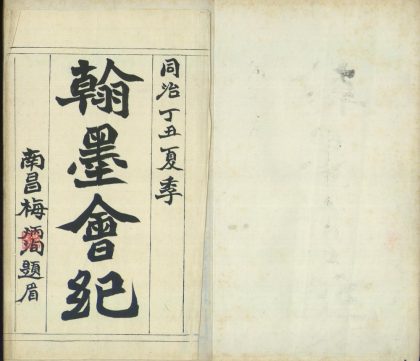 同治丁丑夏季
翰墨會紀
南昌梅炳洵題眉